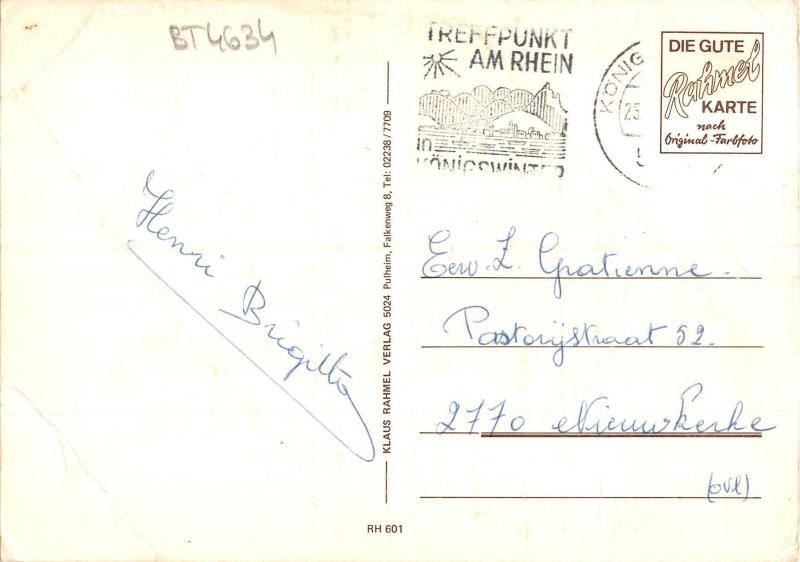 BT4634
TREFFPUNKT
AM RHEIN
in
KÖNIGSWINTER
KÖNIG
25.
DIE GUTE
Rahmel
KARTE
nach
Original-Farbfoto
Henri Brigitta
KLAUS RAHMEL VERLAG 5024 Pulheim, Falkenweg 8, Tel: 02238/7709
Eerw. Z. Gratienne.
Pastorijstraat 52.
2770 Nieuwkerke
(ovl)
RH 601